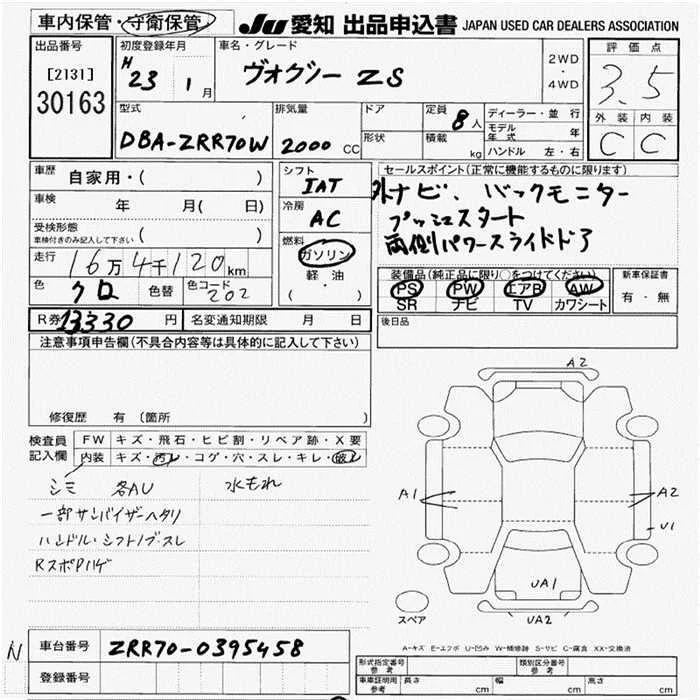 車内保管・守衛保管
JU 愛知 出品申込書 JAPAN USED CAR DEALERS ASSOCIATION
出品番号
[2131]
30163
初度登録年月
H 23 1 月
車名・グレード
ヴォグシー ZS
2WD
・
4WD
評価点
3.5
外装 内装
C C
型式
DBA-ZRR70W
排気量
2000 CC
ドア
形状
定員
8人
積載
kg
ディーラー・並行
モデル年式 年
ハンドル 左・右
車歴
自家用・( )
車検
年 月( 日)
受検形態
車検付きのみ記入して下さい ( )
走行
16万4千120km
色
クロ
色替
色コード
202
シフト
IAT
冷房
AC
燃料
ガソリン
軽油
( ・ )
セールスポイント(正常に機能するものに限ります)
外ナビ、バックモニター
プッシュスタート
両側パワースライドドア
装備品(純正品に限り○をつけてください)
PS PW エアB AW
SR ナビ TV カワシート
新車保証書
有・無
R券 13330 円
名変通知期限 月 日
後日品
注意事項申告欄(不具合内容等は具体的に記入して下さい)
修復歴 有 (箇所 )
検査員
記入欄
FW キズ・飛石・ヒビ割・リペア跡・X要
内装 キズ・汚レ・コゲ・穴・スレ・キレ・破レ
シミ 各AU 水もれ
一部サンバイザーヘタリ
ハンドル・シフトノブ・スレ
RスポPハゲ
A2
A1
A2
U1
UA1
UA2
スペア
A-キズ E-エクボ U-凹み W-補修跡 S-サビ C-腐食 XX-交換済
N
車台番号
ZRR70-0395458
登録番号
形式指定番号
参考
類別区分番号
参考
車庫証明用
参考
長さ cm 幅 cm 高さ cm